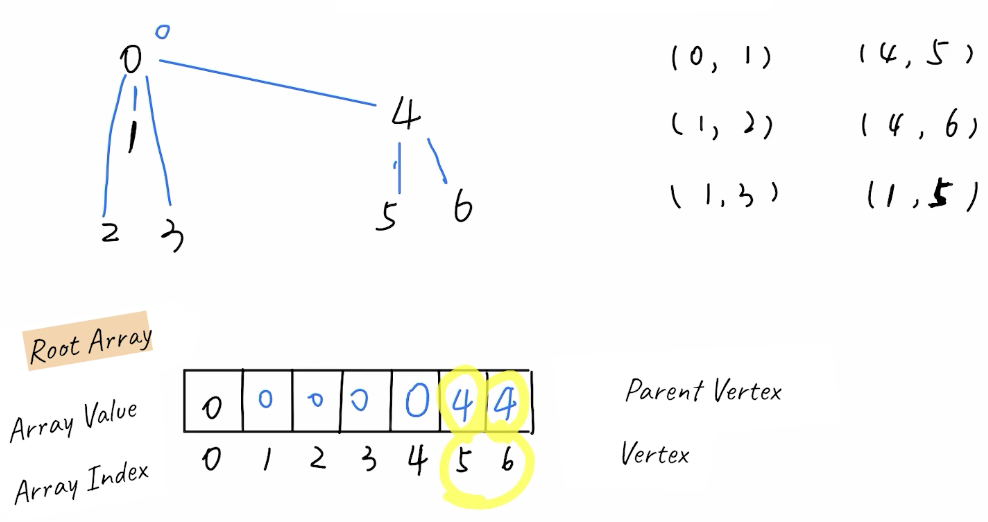 0
0
4
1
2 3
5 6
(0, 1) (4, 5)
(1, 2) (4, 6)
(1, 3) (1, 5)
Root Array
Array Value 0 0 0 0 0 4 4 Parent Vertex
Array Index 0 1 2 3 4 5 6 Vertex